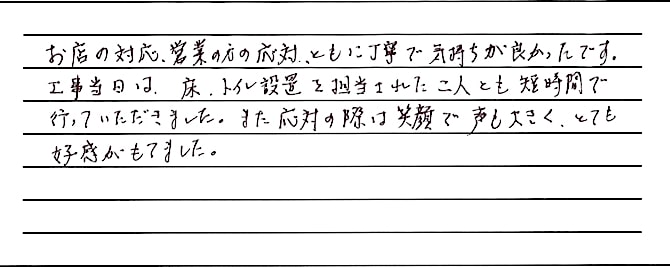 お店の対応、営業の方の応対、ともに丁寧で気持ちが良かったです。
工事当日は、床、トイレ設置を担当された二人とも短時間で
行っていただきました。また応対の際は笑顔で声も大きく、とても
好感がもてました。